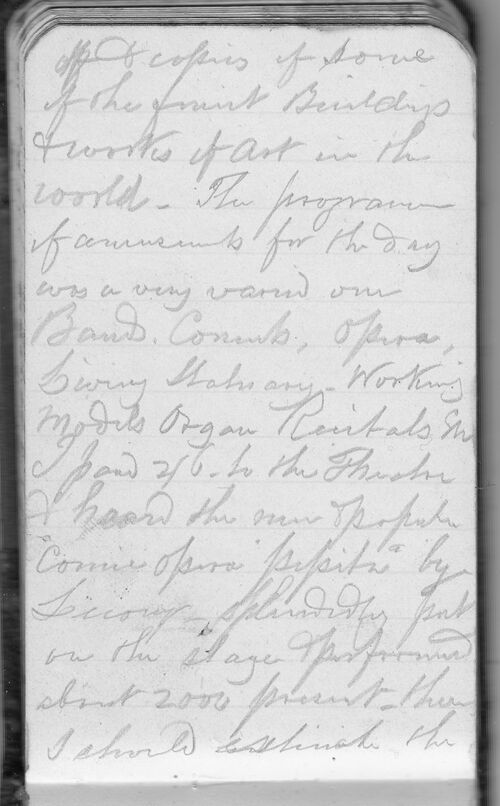 & copies of some
of the finest Buildings
& works of Art in the
world - The programme
of amusements for the day
was a very varied one
Band. Comets, Opera,
Living Statuary - Working
Models Organ Recitals Etc
I paid 2/6 to the Theatre
& heard the new & popular
"Comic opera "Pepita" by
Lecocq - splendidly put
on the stage & performed
about 2000 present - there
I should estimate the